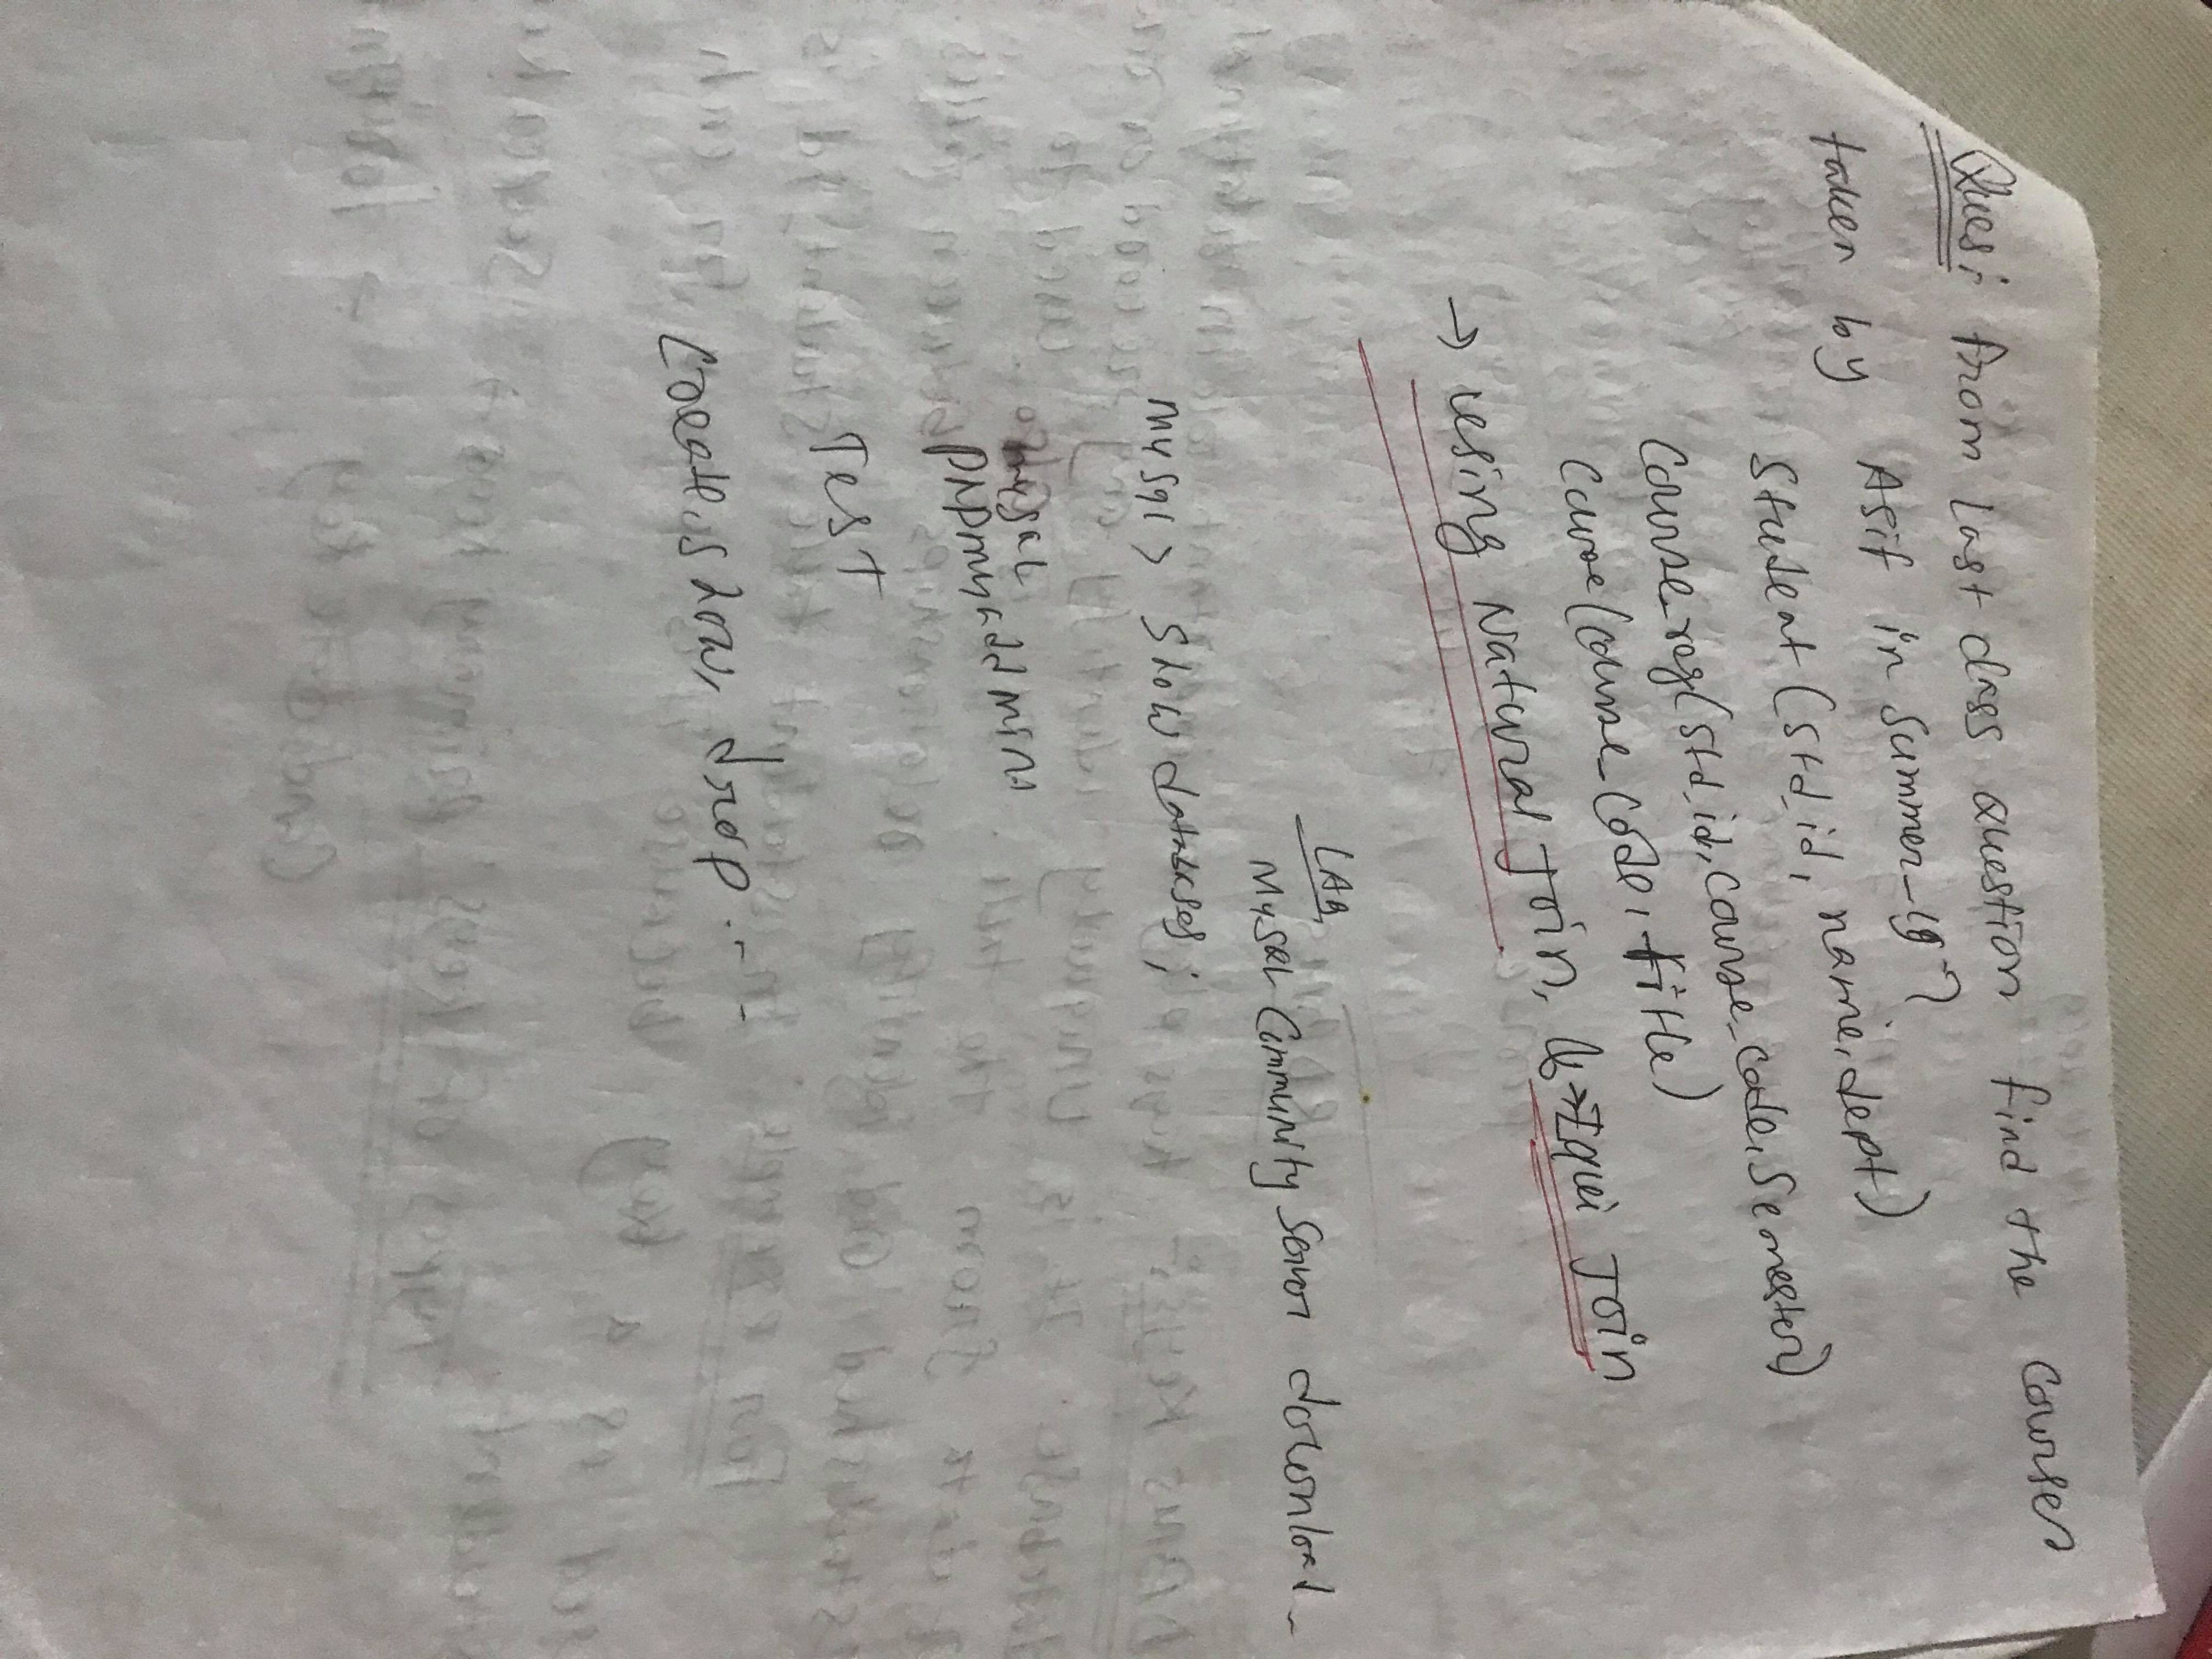 Ques: from Last class question find the courses
taken by Asif in Summer_19?
Student (Std_id, name, dept)
Course_reg (Std_id, Course_Code, Semester)
Course (Course_Code, title)
→ using Natural Join, → Equi Join
LAB
MySQL Community Server download_
MySql> Show databases;
mysql
phpmyaddmin
Test
Create, show, drop . - -